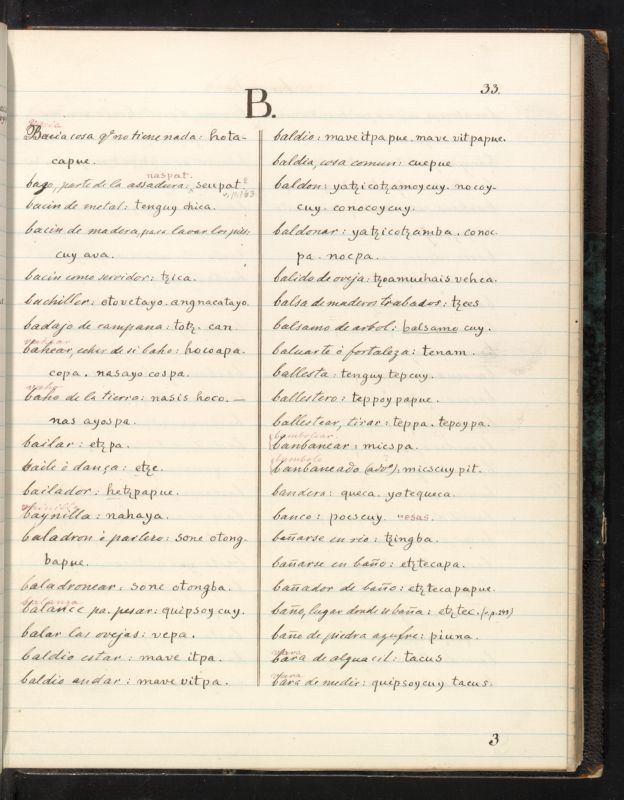 33.
B.
vacia
Bacia cosa q^e no tiene nada: hota-
capue.
naspat.
bago, parte de la assadura: seupat
bacin de metal: tenguy chica.
bacin de madera, para lavar los pies:
cuy ava.
bacin como servidor: tzica.
bachiller: otovetayo. angnacatayo.
badajo de campana: totz. can
bahear, echar de si baho: hocoapa.
copa. nasayo cospa.
vaho
baho de la tierra: nasis hoco. —
nas ayospa.
bailar: etzpa.
baile ò dança: etze.
bailador: hetzpapue.
vainilla
baynilla: nahaya.
baladron ò parlero: sone otong.
bapue.
baladronear: sone otongba.
balanza
balance pa. pesar: quipsoycuy.
balar las ovejas: vepa.
baldio estar: mave itpa.
baldio andar: mave vitpa.
baldio: mave itpa pue. mave vitpapue.
baldia, cosa comun: cuepue
baldon: yatzicotzamoycuy. nocoy-
cuy. conocoycuy.
baldonar: yatzicotzamba. conoc.
pa. nocpa.
balido de oveja: tzoamuehais vehca.
balsa de maderos trabados: tzees
balsamo de arbol: balsamo cuy.
baluarte ò fortaleza: tenam.
ballesta: tenguy tepcuy.
ballestero: teppoypapue.
ballestear, tirar: teppa. tepoypa.
bambolear
banbanear: micspa.
bambole
banbaneado (ado^e): micscuy pit.
bandera: queca. yotequeca.
banco: poescuy. vesas.
bañarse en rio: tzingba.
bañarse en baño: etztecapa.
bañador de baño: etztecapapue.
baño, lugar donde se baña: etztec. (v.p. 293)
baño de piedra açufre: piuna.
vara
bara de alguacil: tacus
vara
bara de medir: quipsoycuy tacus.
3